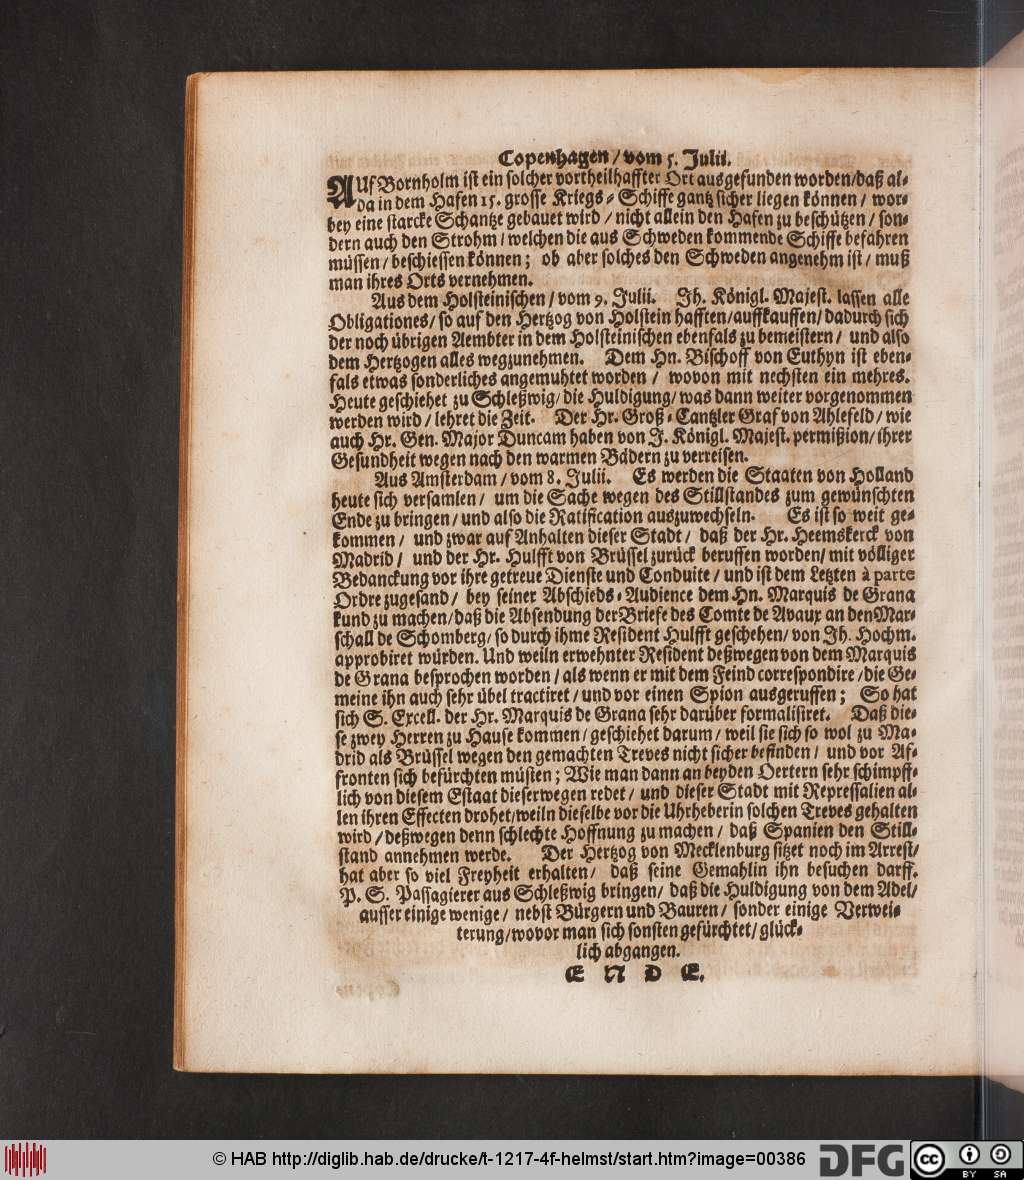 Copenhagen / vom 5. Julii.
AUf Bornholm ist ein solcher vortheilhaffter Ort ausgefunden worden/daß al-
da in dem Hafen 15. grosse Kriegs-Schiffe gantz sicher liegen können / wor-
bey eine starcke Schantze gebauet wird / nicht allein den Hafen zu beschützen / son-
dern auch den Strohm / welchen die aus Schweden kommende Schiffe befahren
müssen / beschiessen können; ob aber solches den Schweden angenehm ist / muß
man ihres Orts vernehmen.
Aus dem Holsteinischen / vom 9. Julii. Ih. Königl. Majest. lassen alle
Obligationes/ so auf den Hertzog von Holstein hafften/auffkauffen/ dadurch sich
der noch übrigen Aembter in dem Holsteinischen ebenfals zu bemeistern / und also
dem Hertzogen alles wegzunehmen. Dem Hn. Bischoff von Euthyn ist eben-
fals etwas sonderliches angemuhtet worden / wovon mit nechsten ein mehres.
Heute geschiehet zu Schleßwig/ die Huldigung/ was dann weiter vorgenommen
werden wird / lehret die Zeit. Der Hr. Groß-Cantzler Graf von Ahlefeld / wie
auch Hr. Gen. Major Duncam haben von J. Königl. Majest. permißion/ ihrer
Gesundheit wegen nach den warmen Bädern zu verreisen.
Aus Amsterdam / vom 8. Julii. Es werden die Staaten von Holland
heute sich versamlen / um die Sache wegen des Stillstandes zum gewünschten
Ende zu bringen / und also die Ratification auszuwechseln. Es ist so weit ge-
kommen / und zwar auf Anhalten dieser Stadt / daß der Hr. Heemskerck von
Madrid / und der Hr. Hulfft von Brüssel zurück beruffen worden/ mit völliger
Bedanckung vor ihre getreue Dienste und Conduite / und ist dem Letzten à parte
Ordre zugesand / bey seiner Abschieds-Audience dem Hn. Marquis de Grana
kund zu machen/daß die Absendung der Briefe des Comte de Avaux an den Mar-
schall de Schomberg/ so durch ihme Resident Hulfft geschehen/ von Ih. Hochm.
approbiret würden. Und weiln erwehnter Resident deßwegen von dem Marquis
de Grana besprochen worden / als wenn er mit dem Feind correspondire / die Ge-
meine ihn auch sehr übel tractiret / und vor einen Spion ausgeruffen; So hat
sich S. Excell. der Hr. Marquis de Grana sehr darüber formalisiret. Daß die-
se zwey Herren zu Hause kommen / geschiehet darum / weil sie sich so wol zu Ma-
drid als Brüssel wegen den gemachten Treves nicht sicher befinden / und vor Af-
fronten sich befürchten müsten; Wie man dann an beyden Oertern sehr schimpff-
lich von diesem Estaat dieserwegen redet / und dieser Stadt mit Repressalien al-
len ihren Effecten drohet/weiln dieselbe vor die Uhrheberin solchen Treves gehalten
wird / deßwegen denn schlechte Hoffnung zu machen / daß Spanien den Still-
stand annehmen werde. Der Hertzog von Mecklenburg sitzet noch im Arrest/
hat aber so viel Freyheit erhalten / daß seine Gemahlin ihn besuchen darff.
P. S. Passagierer aus Schleßwig bringen/ daß die Huldigung von dem Adel/
ausser einige wenige / nebst Bürgern und Bauren / sonder einige Verwei-
terung/wovor man sich sonsten gefürchtet/ glück-
lich abgangen.
E N D E.
© HAB http://diglib.hab.de/drucke/t-1217-4f-helmst/start.htm?image=00386
DFG
cc
BY SA